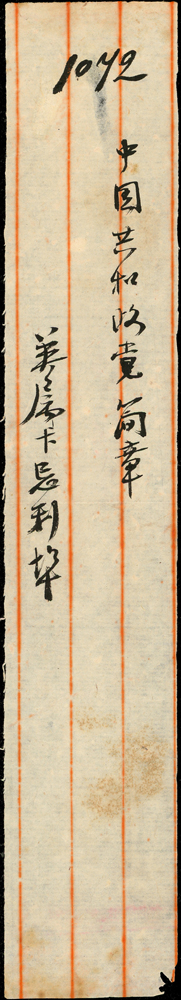 1072
中国共和政党简章
英属卡忌利埠